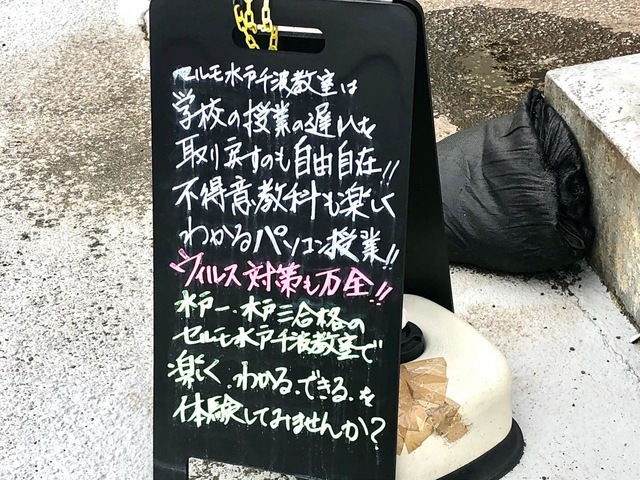 セルモ水戸千波教室は
学校の授業の遅れを
取り戻すのも自由自在!!
不得意教科も楽しく
わかるパソコン授業!!
ウィルス対策も万全!!
水戸一・水戸三合格の
セルモ水戸千波教室で
楽しく.わかる.できる.を
体験してみませんか?